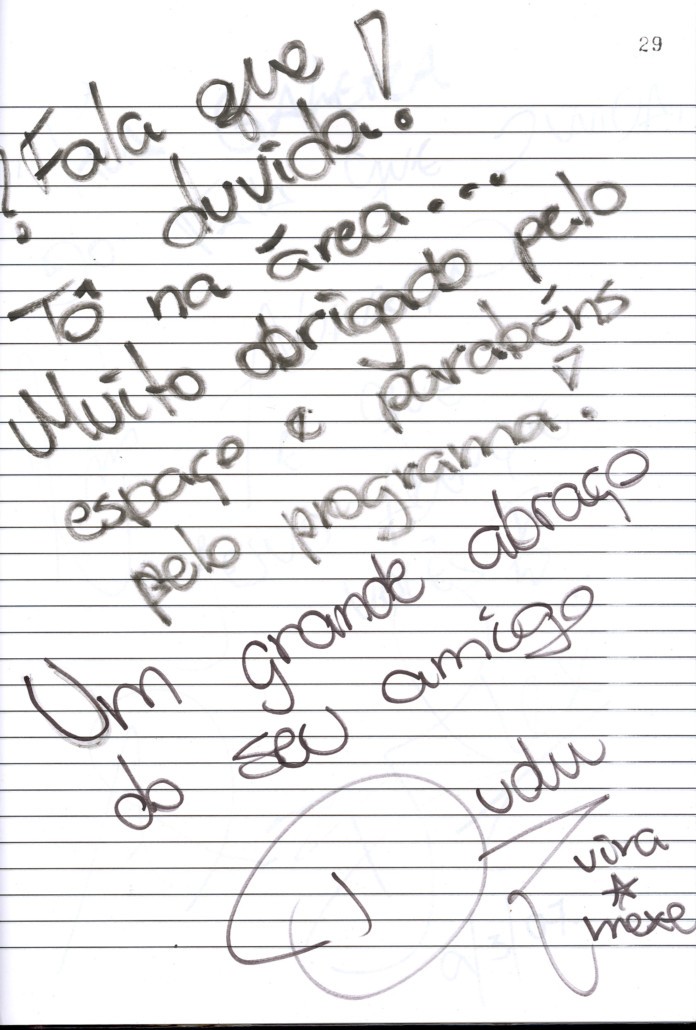 29
?Fala que
duvida!
Tô na área...
Muito obrigado pelo
espaço e parabéns
pelo programa!
Um grande abraço
do seu amigo
Dudu
vira
mexe